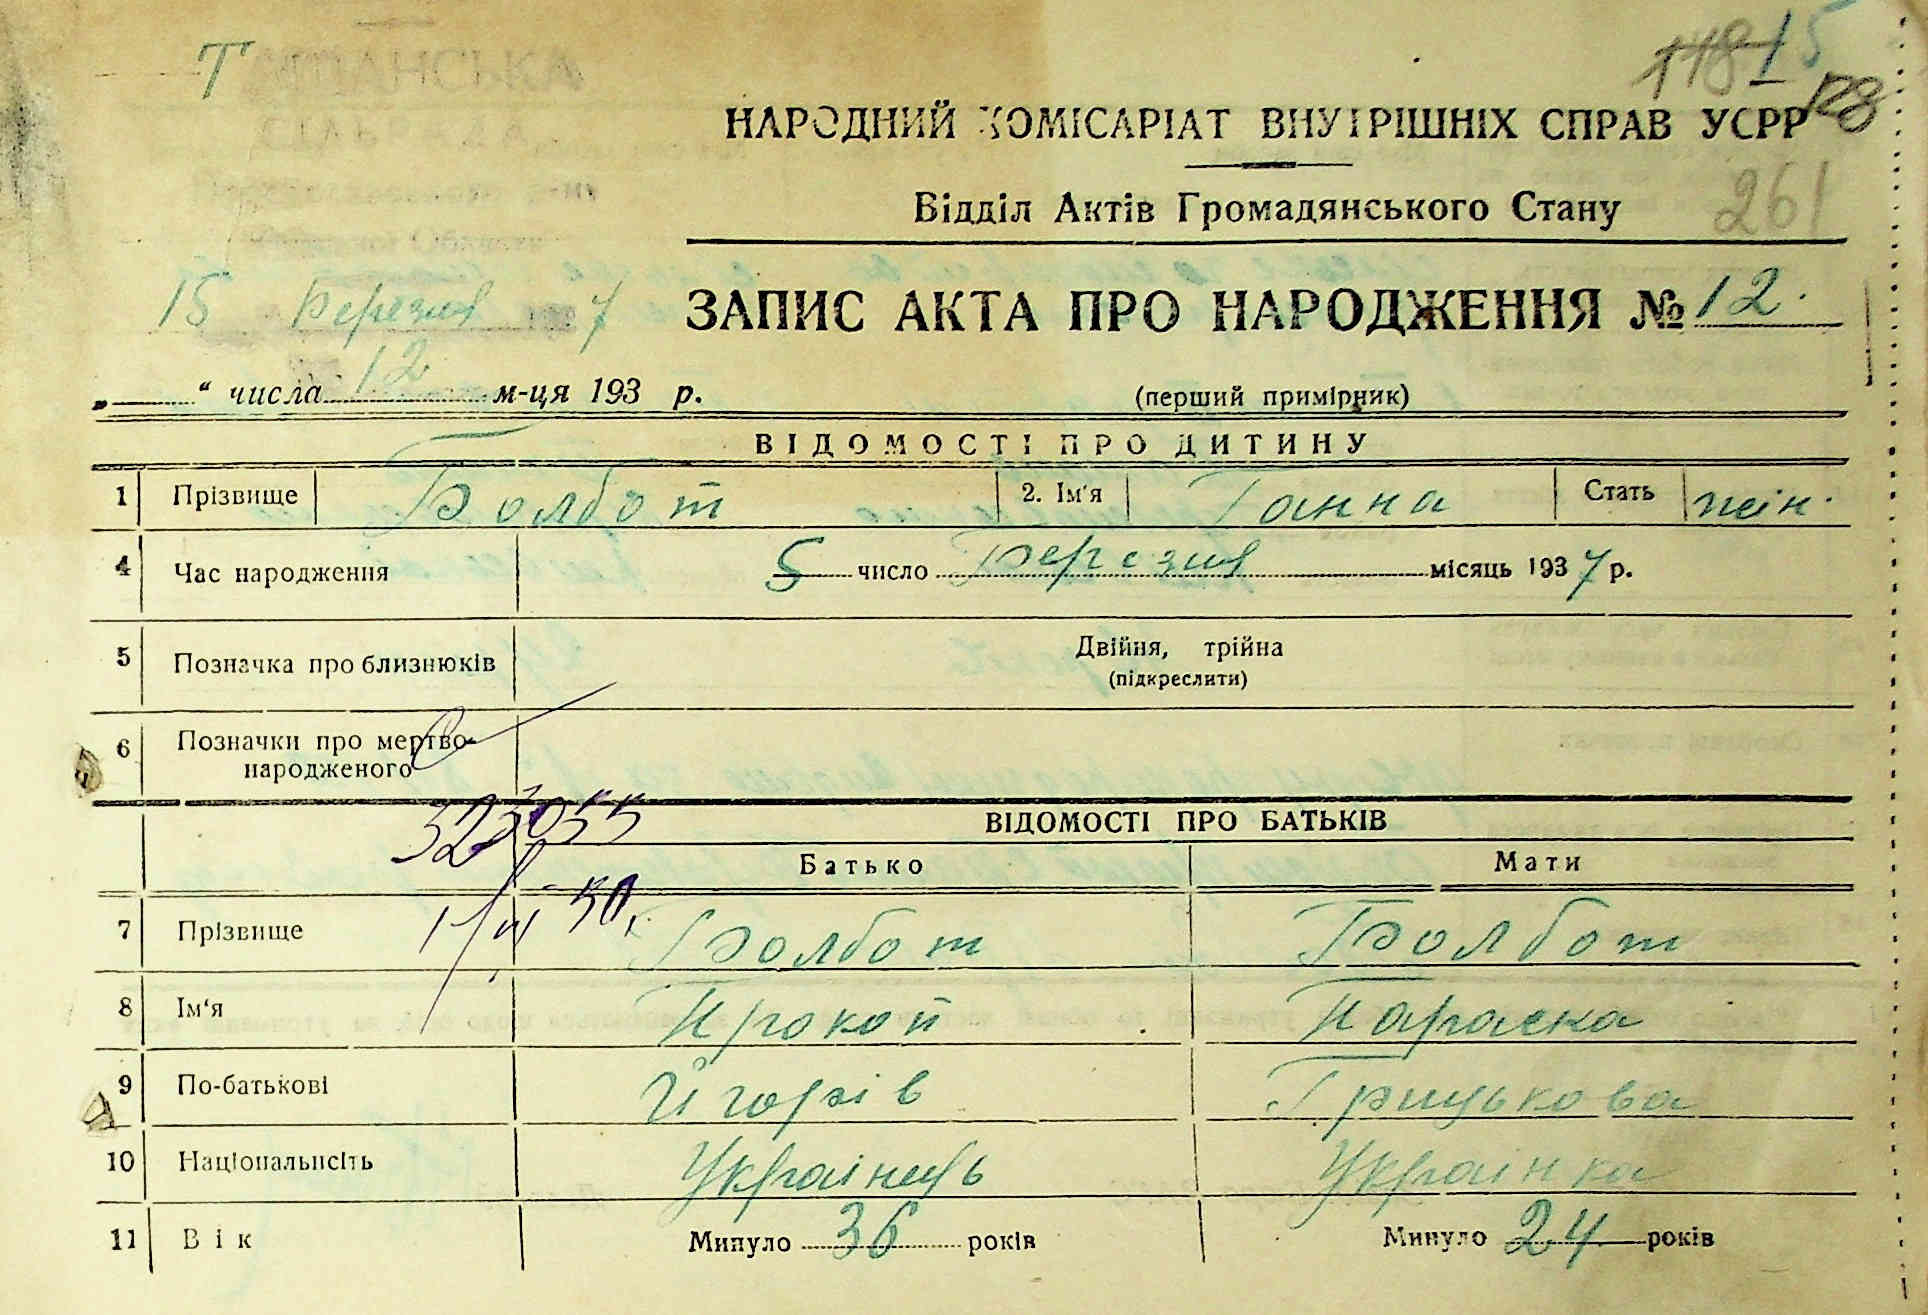 Т
118 15
128
НАРОДНИЙ КОМІСАРІАТ ВНУТРІШНІХ СПРАВ УСРР
Відділ Актів Громадянського Стану
261
15 Березня 7
ЗАПИС АКТА ПРО НАРОДЖЕННЯ № 12.
12
„ “ числа м-ця 193 р.
(перший примірник)
ВІДОМОСТІ ПРО ДИТИНУ
1 Прізвище Болбот 2. Ім'я Ганна Стать жін.
4 Час народження 5 число Березня місяць 1937 р.
5 Позначка про близнюків Двійня, трійна
(підкреслити)
6 Позначки про мертво-
народженого
323055
ВІДОМОСТІ ПРО БАТЬКІВ
Батько Мати
50.
7 Прізвище Болбот Болбот
8 Ім‘я Прокоп Параска
9 По-батькові Йгорів Грицькова
10 Національнсіть Українець Українка
11 Вік Минуло 36 років Минуло 24 років